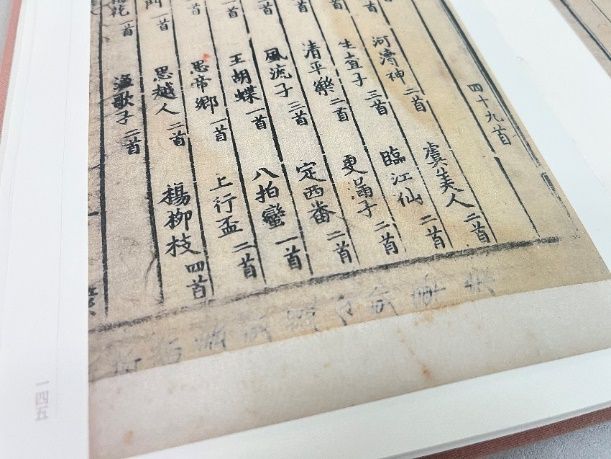 四十九首
河瀆神 二首 虞美人 二首
生查子 三首 臨江仙 二首
清平樂 二首 更漏子 二首
風流子 三首 定西番 二首
玉胡蝶 一首 八拍蠻 一首
思帝鄉 一首 上行盃 二首
門 一首 思越人 二首 楊柳枝 四首
花 一首 漁歌子 二首
一四五